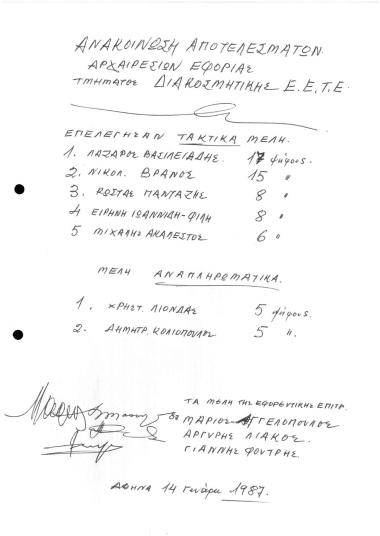 ΑΝΑΚΟΙΝΩΣΗ ΑΠΟΤΕΛΕΣΜΑΤΩΝ
ΑΡΧΑΙΡΕΣΙΩΝ ΕΦΟΡΙΑΣ
ΤΜΗΜΑΤΟΣ ΔΙΑΚΟΣΜΗΤΙΚΗΣ Ε.Ε.Τ.Ε.
ΕΠΕΛΕΓΗΣΑΝ ΤΑΚΤΙΚΑ ΜΕΛΗ:
1. ΛΑΖΑΡΟΣ ΒΑΣΙΛΕΙΑΔΗΣ. 17 ψήφους.
2. ΝΙΚΟΛ. ΒΡΑΝΟΣ 15 "
3. ΚΩΣΤΑΣ ΠΑΝΤΑΖΗΣ 8 "
4 ΕΙΡΗΝΗ ΙΩΑΝΝΙΔΗ-ΦΙΛΗ 8 "
5 ΜΙΧΑΛΗΣ ΑΚΑΛΕΣΤΟΣ 6 "
ΜΕΛΗ ΑΝΑΠΛΗΡΩΜΑΤΙΚΑ.
1. ΧΡΗΣΤ. ΛΙΟΝΔΑΣ 5 ψήφους.
2. ΔΗΜΗΤΡ. ΚΟΛΙΟΠΟΥΛΟΣ 5 ".
ΤΑ ΜΕΛΗ ΤΗΣ ΕΦΟΡΕΥΤΙΚΗΣ ΕΠΙΤΡ.
ΜΑΡΙΟΣ ΑΓΓΕΛΟΠΟΥΛΟΣ
ΑΡΓΥΡΗΣ ΛΙΑΚΟΣ
ΓΙΑΝΝΗΣ ΦΟΥΤΡΗΣ
ΑΘΗΝΑ 14 Γενάρη 1987.